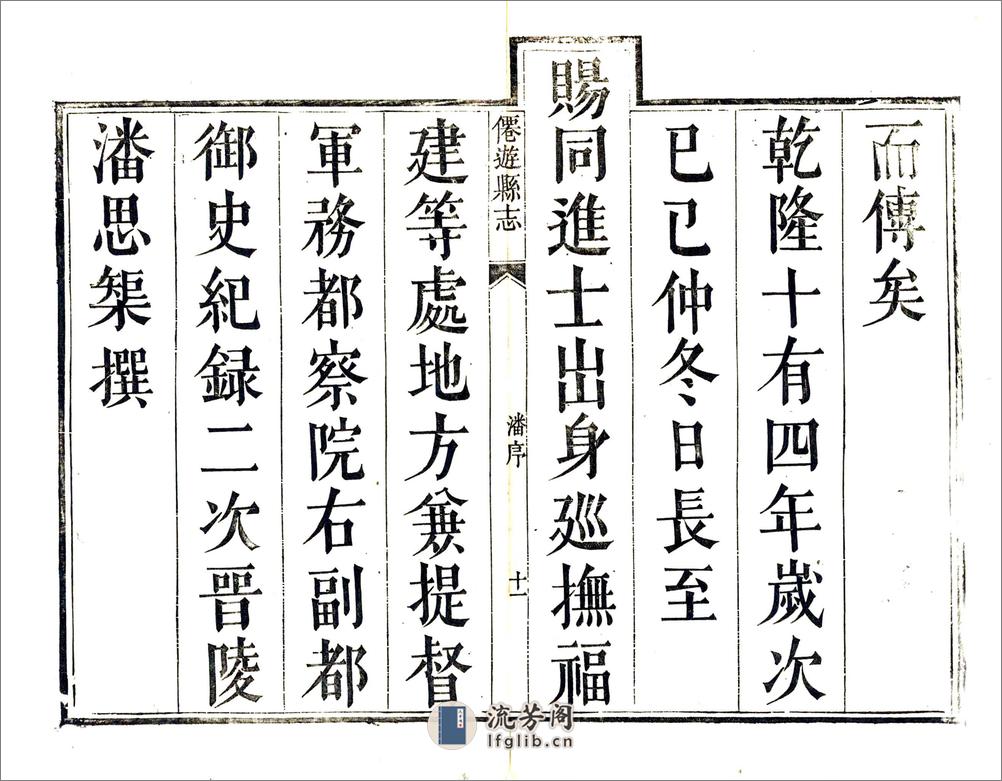 而傳矣
乾隆十有四年歲次
己巳仲冬日長至
賜同進士出身巡撫福
僊遊縣志
潘序
十一
建等處地方兼提督
軍務都察院右副都
御史紀録二次晉陵
潘思榘撰
流芳阁
lfglib.cn